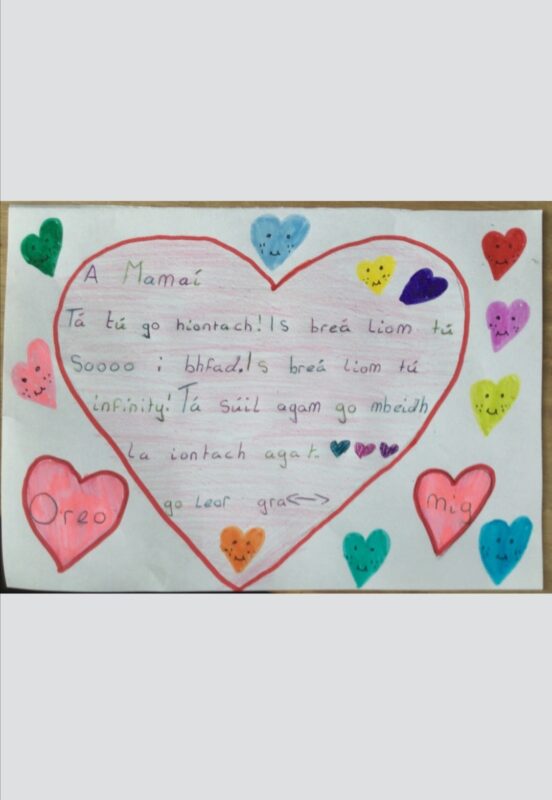 A Mamaí
Tá tú go hiontach! Is breá liom tú
Soooo i bhfad. Is breá liom tú
infinity! Tá súil agam go mbeidh
la iontach agat..
go leor gra
Oreo
mig